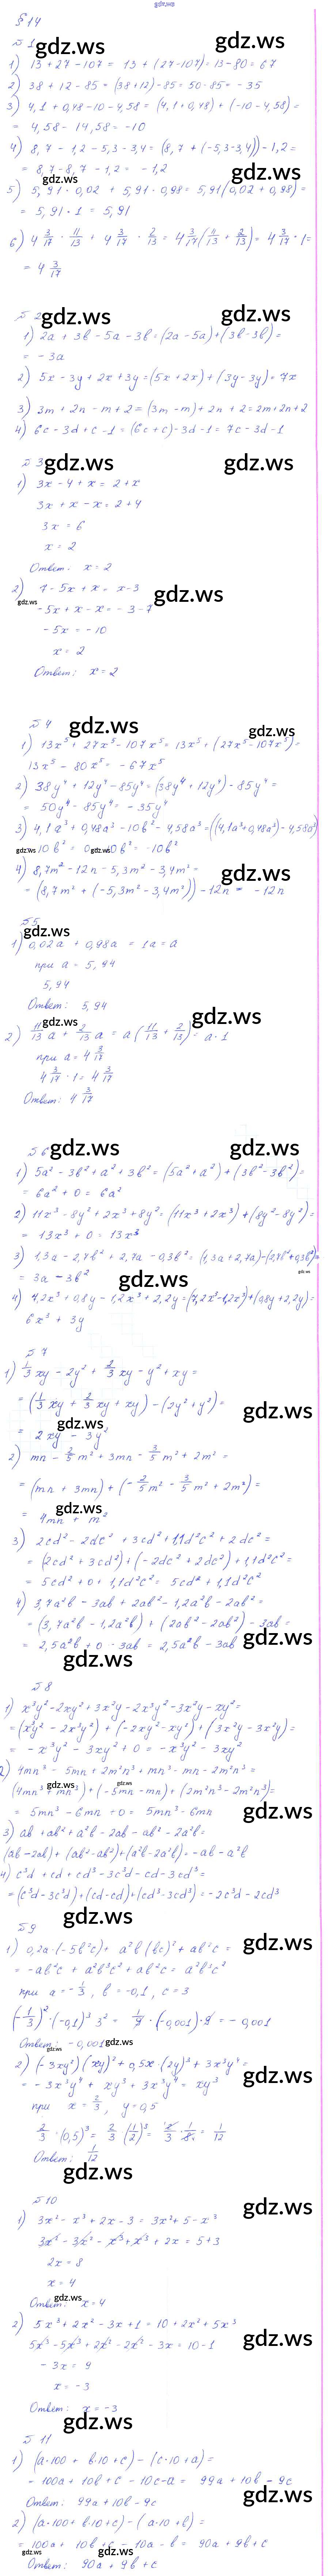 gdz.ws
§ 14
№ 1
gdz.ws gdz.ws
1) 13 + 27 - 107 = 13 + (27-107) = 13 - 80 = 67
2) 38 + 12 - 85 = (38+12) - 85 = 50 - 85 = - 35
3) 4,1 + 0,48 - 10 - 4,58 = (4,1 + 0,48) + (-10 - 4,58) =
= 4,58 - 14,58 = -10
4) 8,7 - 1,2 - 5,3 - 3,4 = (8,7 + (-5,3-3,4)) - 1,2 =
= 8,7 - 8,7 - 1,2 = - 1,2
gdz.ws gdz.ws
5) 5,91 · 0,02 + 5,91 · 0,98 = 5,91 (0,02 + 0,98) =
= 5,91 · 1 = 5,91
6) 4 3/17 · 11/13 + 4 3/17 · 2/13 = 4 3/17 (11/13 + 2/13) = 4 3/17 · 1 =
= 4 3/17
№ 2
gdz.ws gdz.ws
1) 2a + 3b - 5a - 3b = (2a - 5a) + (3b - 3b) =
= - 3a
2) 5x - 3y + 2x + 3y = (5x + 2x) + (3y - 3y) = 7x
3) 3m + 2n - m + 2 = (3m - m) + 2n + 2 = 2m + 2n + 2
4) 6c - 3d + c - 1 = (6c + c) - 3d - 1 = 7c - 3d - 1
№ 3
gdz.ws gdz.ws
1) 3x - 4 + x = 2 + x
3x + x - x = 2 + 4
3x = 6
x = 2
Ответ: x = 2
2) 7 - 5x + x = x - 3
gdz.ws gdz.ws
-5x + x - x = - 3 - 7
- 5x = - 10
x = 2
Ответ: x = 2
№ 4
gdz.ws gdz.ws
1) 13x⁵ + 27x⁵ - 107x⁵ = 13x⁵ + (27x⁵ - 107x⁵) =
13x⁵ - 80x⁵ = - 67x⁵
2) 38y⁴ + 12y⁴ - 85y⁴ = (38y⁴ + 12y⁴) - 85y⁴ =
= 50y⁴ - 85y⁴ = - 35y⁴
3) 4,1a³ + 0,48a³ - 10b² - 4,58a³ = ((4,1a³ + 0,48a³) - 4,58a³)
gdz.ws gdz.ws
10b² = 0 - 10b² = -10b²
4) 8,7m² - 12n - 5,3m² - 3,4m² =
gdz.ws
= (8,7m² + (-5,3m² - 3,4m²)) - 12n = - 12n
№ 5
gdz.ws
1) 0,02a + 0,98a = 1a = a
при a = 5,94
5,94
Ответ: 5,94
gdz.ws gdz.ws
2) 11/13 a + 2/13 a = a (11/13 + 2/13) = a · 1
при a = 4 3/17
4 3/17 · 1 = 4 3/17
Ответ: 4 3/17
№ 6
gdz.ws gdz.ws
1) 5a² - 3b² + a² + 3b² = (5a² + a²) + (3b² - 3b²) =
= 6a² + 0 = 6a²
2) 11x³ - 8y² + 2x³ + 8y² = (11x³ + 2x³) + (8y² - 8y²) =
= 13x³ + 0 = 13x³
3) 1,3a - 2,7b² + 2,7a - 0,3b² = (1,3a + 2,7a) - (2,7b² + 0,3b²) =
gdz.ws
= 3a - 3b²
gdz.ws
4) 7,2x³ + 0,8y - 1,2x³ + 2,2y = (7,2x³ - 1,2x³) + (0,8y + 2,2y) =
6x³ + 3y
№ 7
1) 1/3 xy - 2y² + 2/3 xy - y² + xy =
= (1/3 xy + 2/3 xy + xy) - (2y² + y²) =
gdz.ws gdz.ws
= 2xy - 3y²
2) mn - 2/5 m² + 3mn - 3/5 m² + 2m² =
= (mn + 3mn) + (- 2/5 m² - 3/5 m² + 2m²) =
gdz.ws
= 4mn + m²
3) 2cd² - 2dc² + 3cd² + 1,1d²c² + 2dc² =
= (2cd² + 3cd²) + (-2dc² + 2dc²) + 1,1d²c² =
= 5cd² + 0 + 1,1d²c² = 5cd² + 1,1d²c²
4) 3,7a²b - 3ab + 2ab² - 1,2a²b - 2ab² =
= (3,7a²b - 1,2a²b) + (2ab² - 2ab²) - 3ab =
= 2,5a²b + 0 - 3ab = 2,5a²b - 3ab
gdz.ws gdz.ws
№ 8
1) x³y² - 2xy² + 3x²y - 2x³y² - 3x²y - xy² =
= (x³y² - 2x³y²) + (-2xy² - xy²) + (3x²y - 3x²y) =
= - x³y² - 3xy² + 0 = - x³y² - 3xy²
2) 4mn³ - 5mn + 2m²n³ + mn³ - mn - 2m²n³ =
gdz.ws gdz.ws
(4mn³ + mn³) + (-5mn - mn) + (2m²n³ - 2m²n³) =
= 5mn³ - 6mn + 0 = 5mn³ - 6mn
gdz.ws
3) ab + ab² + a²b - 2ab - ab² - 2a²b =
(ab - 2ab) + (ab² - ab²) + (a²b - 2a²b) = - ab - a²b
4) c³d + cd + cd³ - 3c³d - cd - 3cd³ =
= (c³d - 3c³d) + (cd - cd) + (cd³ - 3cd³) = - 2c³d - 2cd³
gdz.ws
№ 9
gdz.ws
1) 0,2a · (-5b²c) + a²b (bc)² + ab²c =
= - ab²c + a²b³c² + ab²c = a²b³c²
при a = - 1/3, b = -0,1, c = 3
(- 1/3)² · (-0,1)³ 3² = 1/9 · (-0,001) · 9 = - 0,001
Ответ: - 0,001
gdz.ws
gdz.ws
2) (-3xy²)(xy)² + 0,5x · (2y)³ + 3x³y⁴ =
gdz.ws
= - 3x³y⁴ + xy³ + 3x³y⁴ = xy³
при x = 2/3, y = 0,5
2/3 · (0,5)³ = 2/3 (1/2)³ = 2/3 · 1/8 = 1/12
Ответ: 1/12
gdz.ws
№ 10
gdz.ws
1) 3x² - x³ + 2x - 3 = 3x² + 5 - x³
3x² - 3x² - x³ + x³ + 2x = 5 + 3
2x = 8
x = 4
gdz.ws
Ответ: x = 4
2) 5x³ + 2x² - 3x + 1 = 10 + 2x² + 5x³
gdz.ws
5x³ - 5x³ + 2x² - 2x² - 3x = 10 - 1
- 3x = 9
x = - 3
Ответ: x = -3
gdz.ws
№ 11
1) (a·100 + b·10 + c) - (c·10 + a) =
= 100a + 10b + c - 10c - a = 99a + 10b - 9c
gdz.ws
Ответ: 99a + 10b - 9c
2) (a·100 + b·10 + c) - (a·10 + b) =
= 100a + 10b + c - 10a - b = 90a + 9b + c
gdz.ws gdz.ws
Ответ: 90a + 9b + c